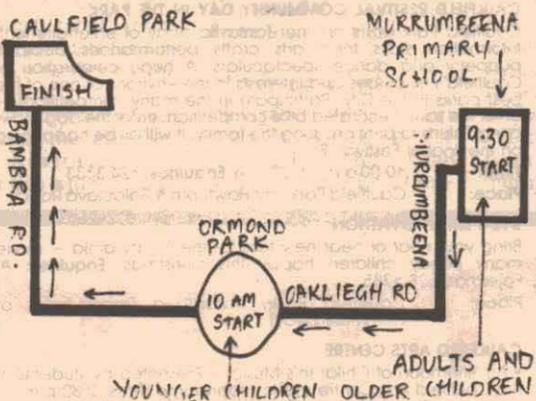 CAULFIELD PARK
FINISH
BAMBRA RD.
MURRUMBEENA
PRIMARY
SCHOOL
9.30
START
ORMOND
PARK
10 AM
START
OAKLIEGH RD
YOUNGER CHILDREN
ADULTS AND
OLDER CHILDREN